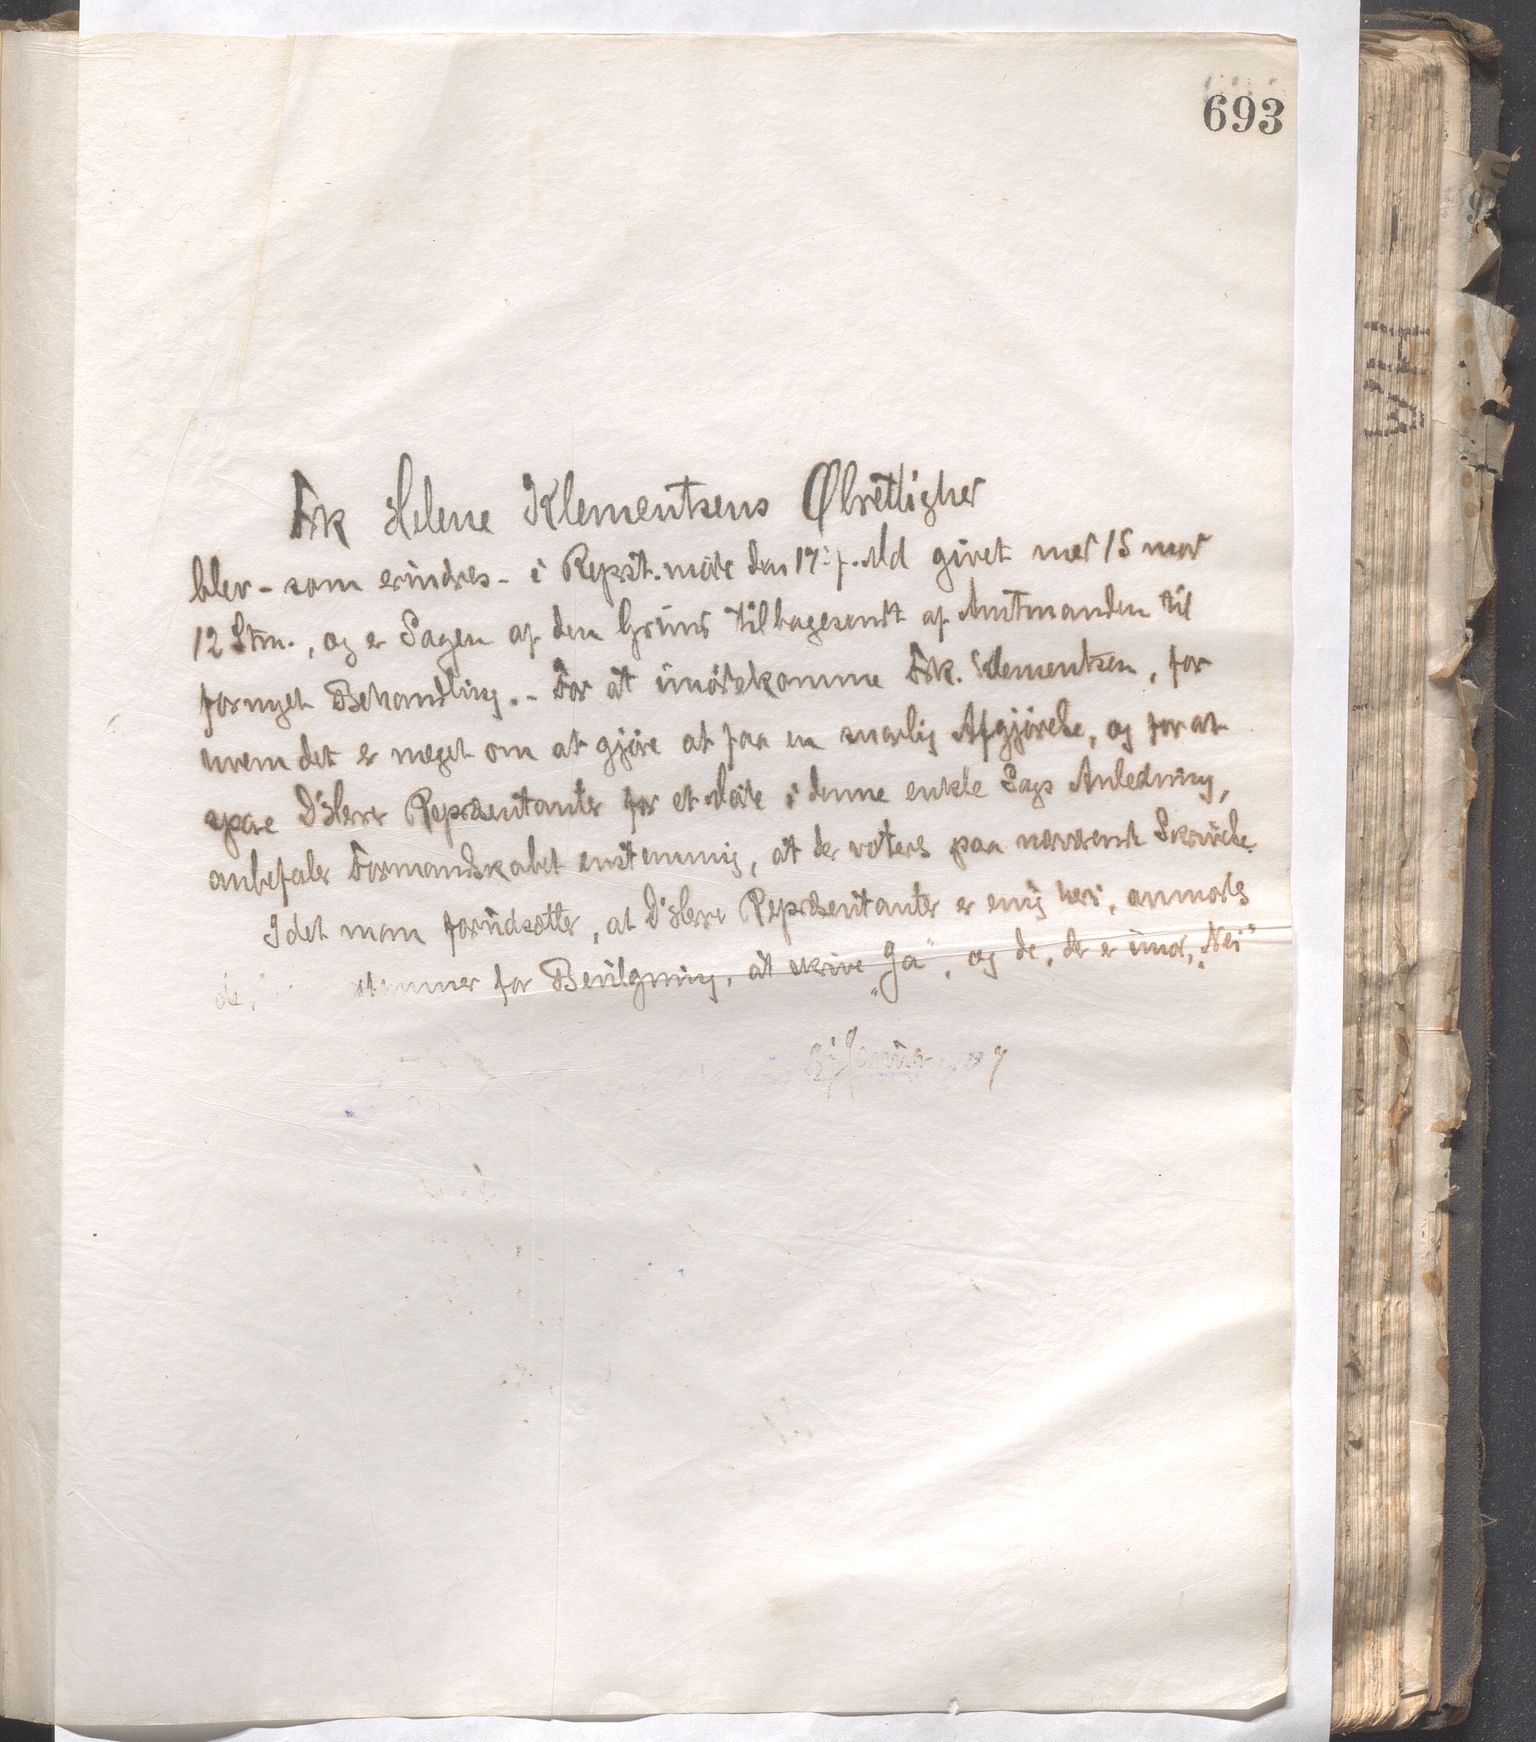 693
Frk Helene Klementsens Ølrettighed
blev - som erindres - i Reprst. møte den 17: f. Md givet med 15 mod
12 Stm., og er Sagen af den Grund tilbagesendt af Amtmanden til
fornyet Behandling. - For at imødekomme Frk. Klementsen, for
hvem det er meget om at gjøre at faa en snarlig Afgjørelse, og for at
spare D'Herrer Repræsentanter for et Møte i denne enkle Sags Anledning,
anbefaler Formandskabet enstemmig, at der voteres paa nærværende Skrivelse.
Idet man forudsætter, at D'Herrer Repræsentanter er enig heri, anmodes
de, stemmer for Bevilgning, at skrive "Ja", og de, der er imod, "Nei"